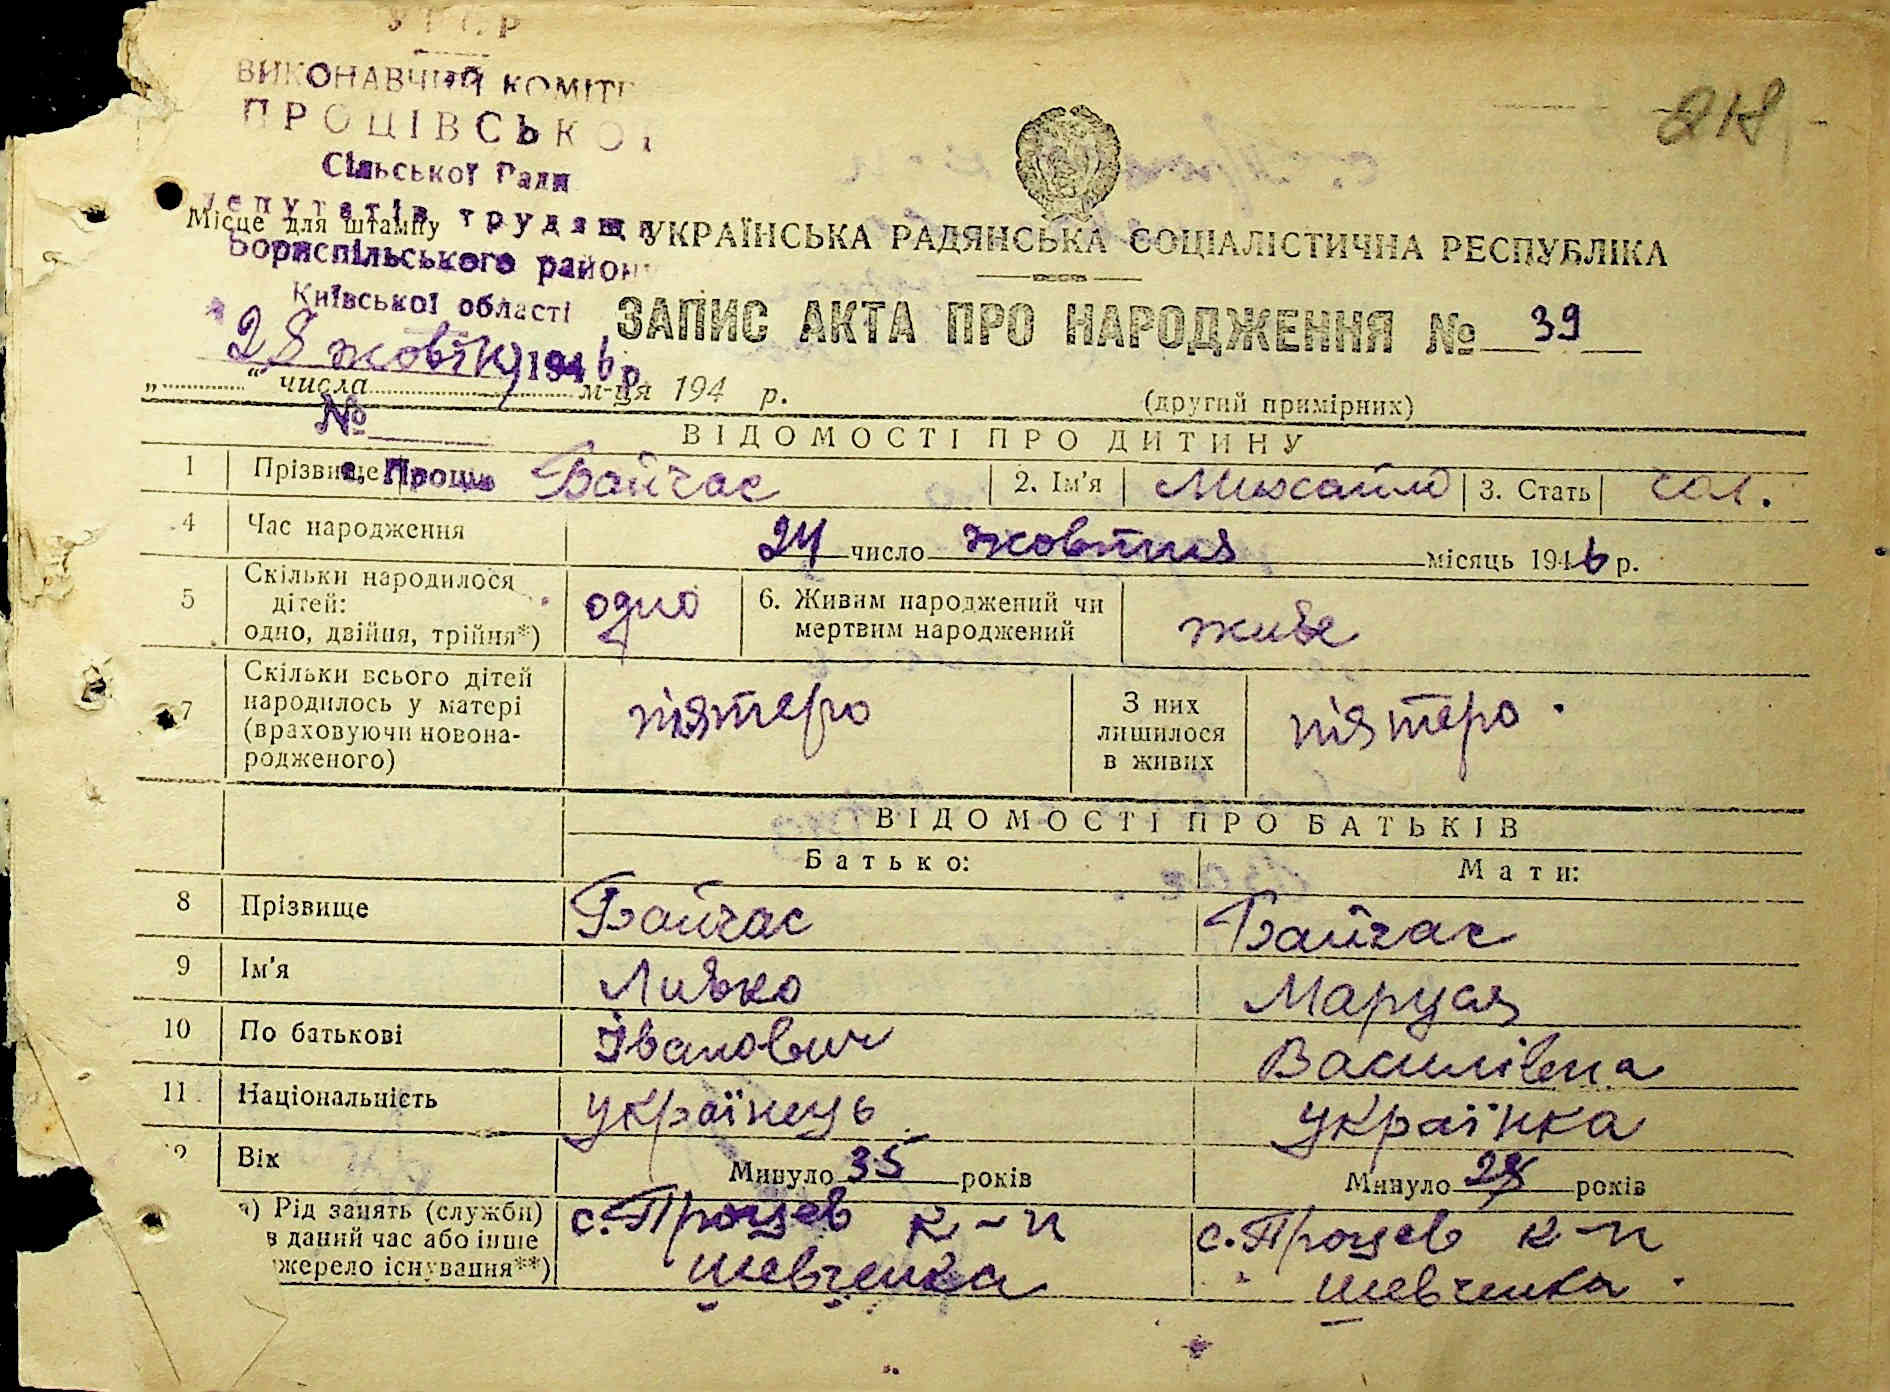 УРСР
ВИКОНАВЧИЙ КОМІТЕ
ПРОЦІВСЬКОЇ
Сільської Ради
депутатів трудящи
Місце для штампу
Бориспільського району
Київської області
28 жовтн 1946 р.
№
с. Проців
218
УКРАЇНСЬКА РАДЯНСЬКА СОЦІАЛІСТИЧНА РЕСПУБЛІКА
ЗАПИС АКТА ПРО НАРОДЖЕННЯ № 39
„ “ числа м-ця 194 р.
(другий примірник)
ВІДОМОСТІ ПРО ДИТИНУ
1 Прізвище Байчас 2. Ім'я Михайло 3. Стать чол.
4 Час народження 24 число жовтня місяць 1946 р.
5 Скільки народилося дітей: одно, двійня, трійня*) одно 6. Живим народжений чи мертвим народжений живе
7 Скільки всього дітей народилось у матері (враховуючи новонародженого) пятеро З них лишилося в живих пятеро.
ВІДОМОСТІ ПРО БАТЬКІВ
Батько: Мати:
8 Прізвище Байчас Байчас
9 Ім'я Ливко Маруся
10 По батькові Іванович Василівна
11 Національність українець українка
2 Вік Минуло 35 років Минуло 28 років
а) Рід занять (служби) с. Процев к-п с. Процев к-п
в даний час або інше Шевченка Шевченка.
жерело існування**)